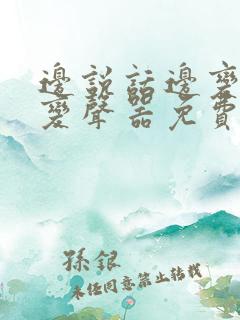 邊說話邊變
變聲器免費
孫銀
未經同意禁止轉載